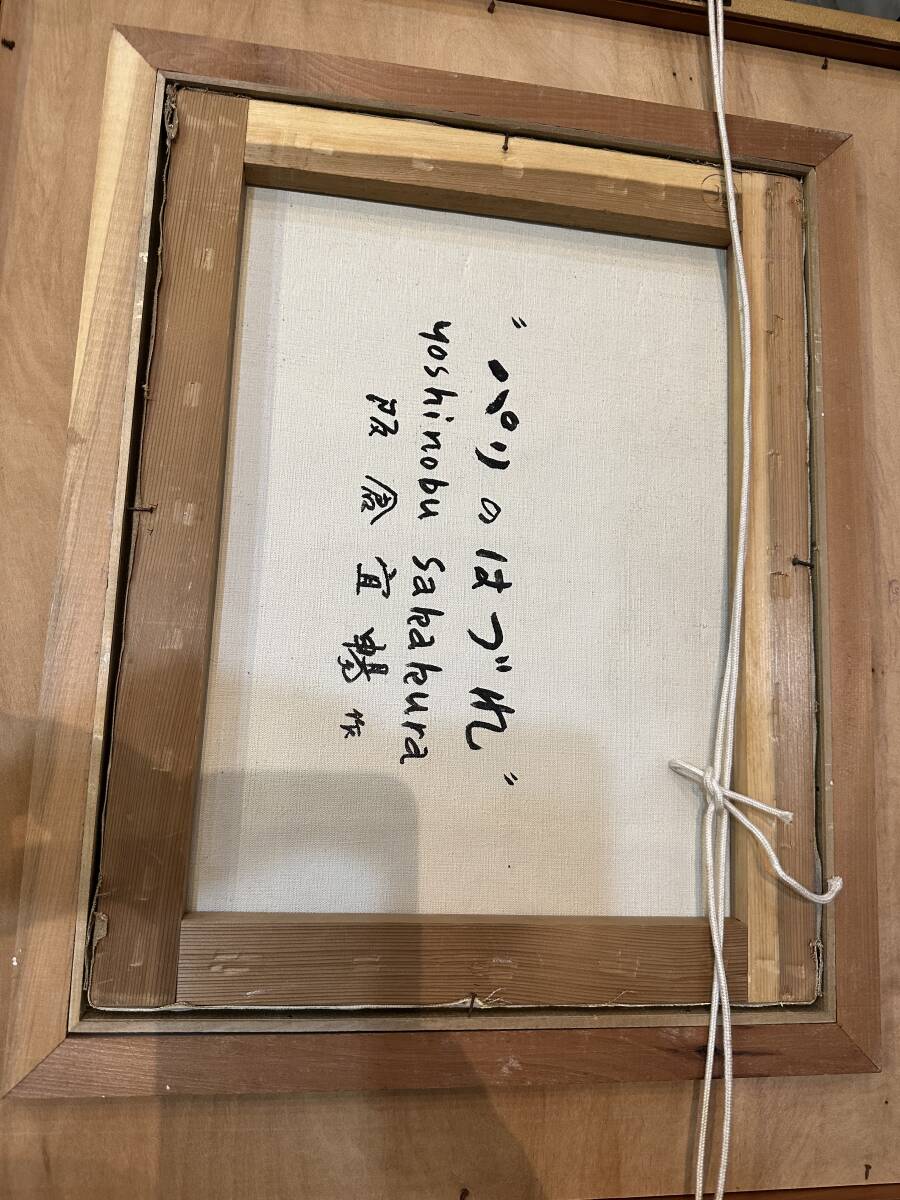 "パリのはづれ"
yoshinobu sakakura
阪倉宜暢 作